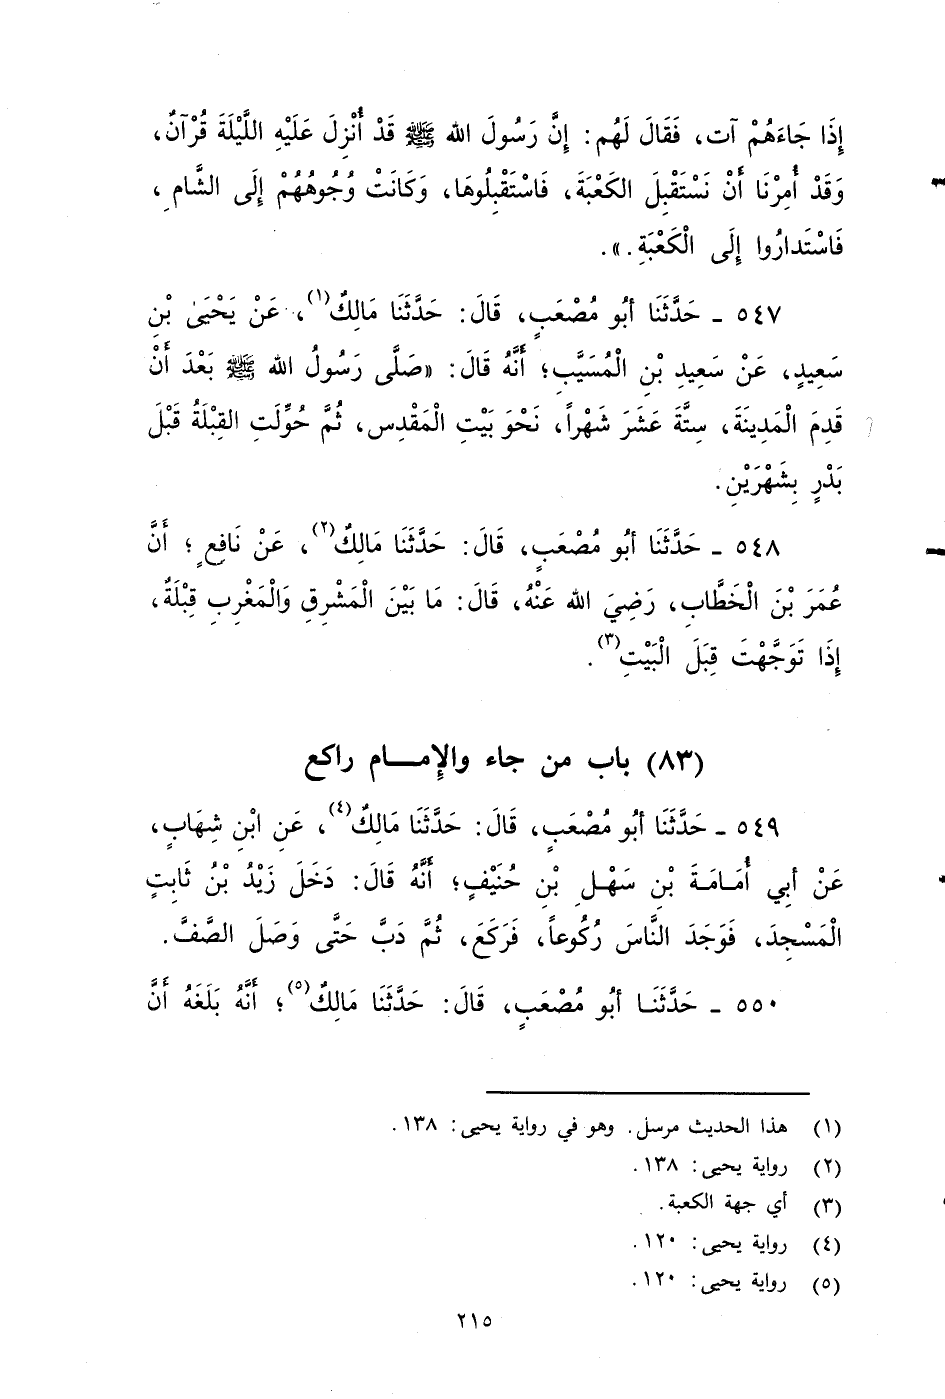 إِذَا جَاءَهُمْ آت، فَقَالَ لَهُم: إِنَّ رَسُولَ الله ﷺ قَدْ أُنْزِلَ عَلَيْهِ اللَّيْلَةَ قُرْآنٌ،
وَقَدْ أُمِرْنَا أَنْ نَسْتَقْبِلَ الكَعْبَةَ، فَاسْتَقْبِلُوهَا، وَكَانَتْ وُجُوهُهُمْ إِلَى الشَّامِ،
فَاسْتَدارُوا إِلَى الْكَعْبَةِ.».
٥٤٧ ـ حَدَّثَنَا أبُو مُصْعَبٍ، قَالَ: حَدَّثَنَا مَالِكٌ(١)، عَنْ يَحْيَىٰ بْنِ
سَعِيدٍ، عَنْ سَعِيدِ بْنِ الْمُسَيَّبِ؛ أَنَّهُ قَالَ: «صَلَّى رَسُولُ الله ﷺ بَعْدَ أَنْ
قَدِمَ الْمَدِينَةَ، سِتَّةَ عَشَرَ شَهْراً، نَحْوَ بَيْتِ المَقْدِسِ، ثُمَّ حُوِّلَتِ القِبْلَةُ قَبْلَ
بَدْرٍ بِشَهْرَيْنِ.
٥٤٨ ـ حَدَّثَنَا أبُو مُصْعَبٍ، قَالَ: حَدَّثَنَا مَالِكٌ(٢)، عَنْ نَافِعٍ؛ أَنَّ
عُمَرَ بْنَ الْخَطَّابِ، رَضِيَ الله عَنْهُ، قَالَ: مَا بَيْنَ الْمَشْرِقِ وَالْمَغْرِبِ قِبْلَةٌ،
إِذَا تَوَجَّهْتَ قِبَلَ الْبَيْتِ(٣).
(٨٣) باب من جاء والإمـــام راكع
٥٤٩ ـ حَدَّثَنَا أبُو مُصْعَبٍ، قَالَ: حَدَّثَنَا مَالِكٌ(٤)، عَنِ ابْنِ شِهَابٍ،
عَنْ أبي أُمَامَةَ بْنِ سَهْلِ بْنِ حُنَيْفٍ؛ أَنَّهُ قَالَ: دَخَلَ زَيْدُ بْنُ ثَابِتٍ
الْمَسْجِدَ، فَوَجَدَ النَّاسَ رُكُوعاً، فَرَكَعَ، ثُمَّ دَبَّ حَتَّى وَصَلَ الصَّفَّ.
٥٥٠ ـ حَدَّثَنَا أبُو مُصْعَبٍ، قَالَ: حَدَّثَنَا مَالِكٌ(٥)؛ أَنَّهُ بَلَغَهُ أَنَّ
(١) هذا الحديث مرسل. وهو في رواية يحيى: ١٣٨.
(٢) رواية يحيى: ١٣٨.
(٣) أي جهة الكعبة.
(٤) رواية يحيى: ١٢٠.
(٥) رواية يحيى: ١٢٠.
٢١٥